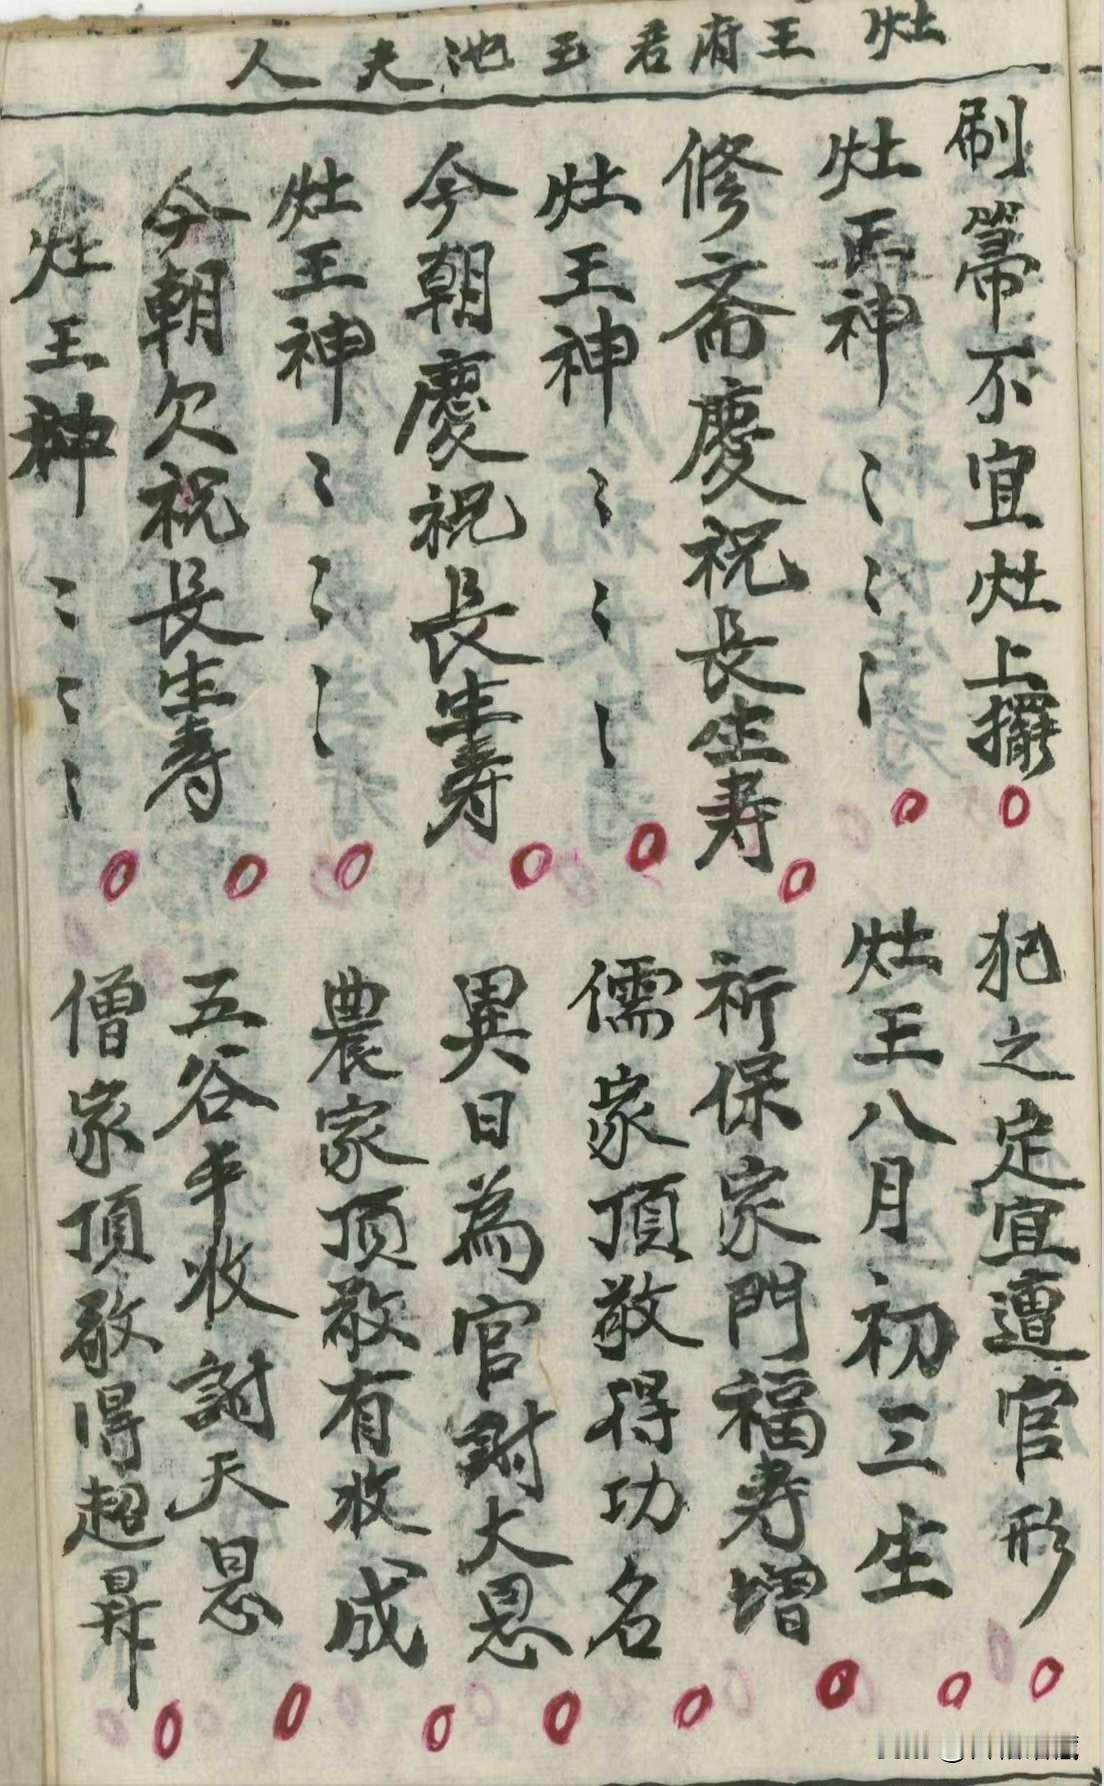 灶王府君玉池夫人
刷箒不宜灶上擺
犯之定宜遭官形
灶王神〻〻〻
灶王八月初三生
修斋慶祝長生寿
祈保家門福寿增
灶王神〻〻〻
儒家頂敬得功名
今朝慶祝長生寿
異日為官謝大恩
灶王神〻〻〻
農家顶敬有收成
今朝欠祝長生寿
五谷半收謝天恩
灶王神〻〻〻
僧家頂敬得超昇